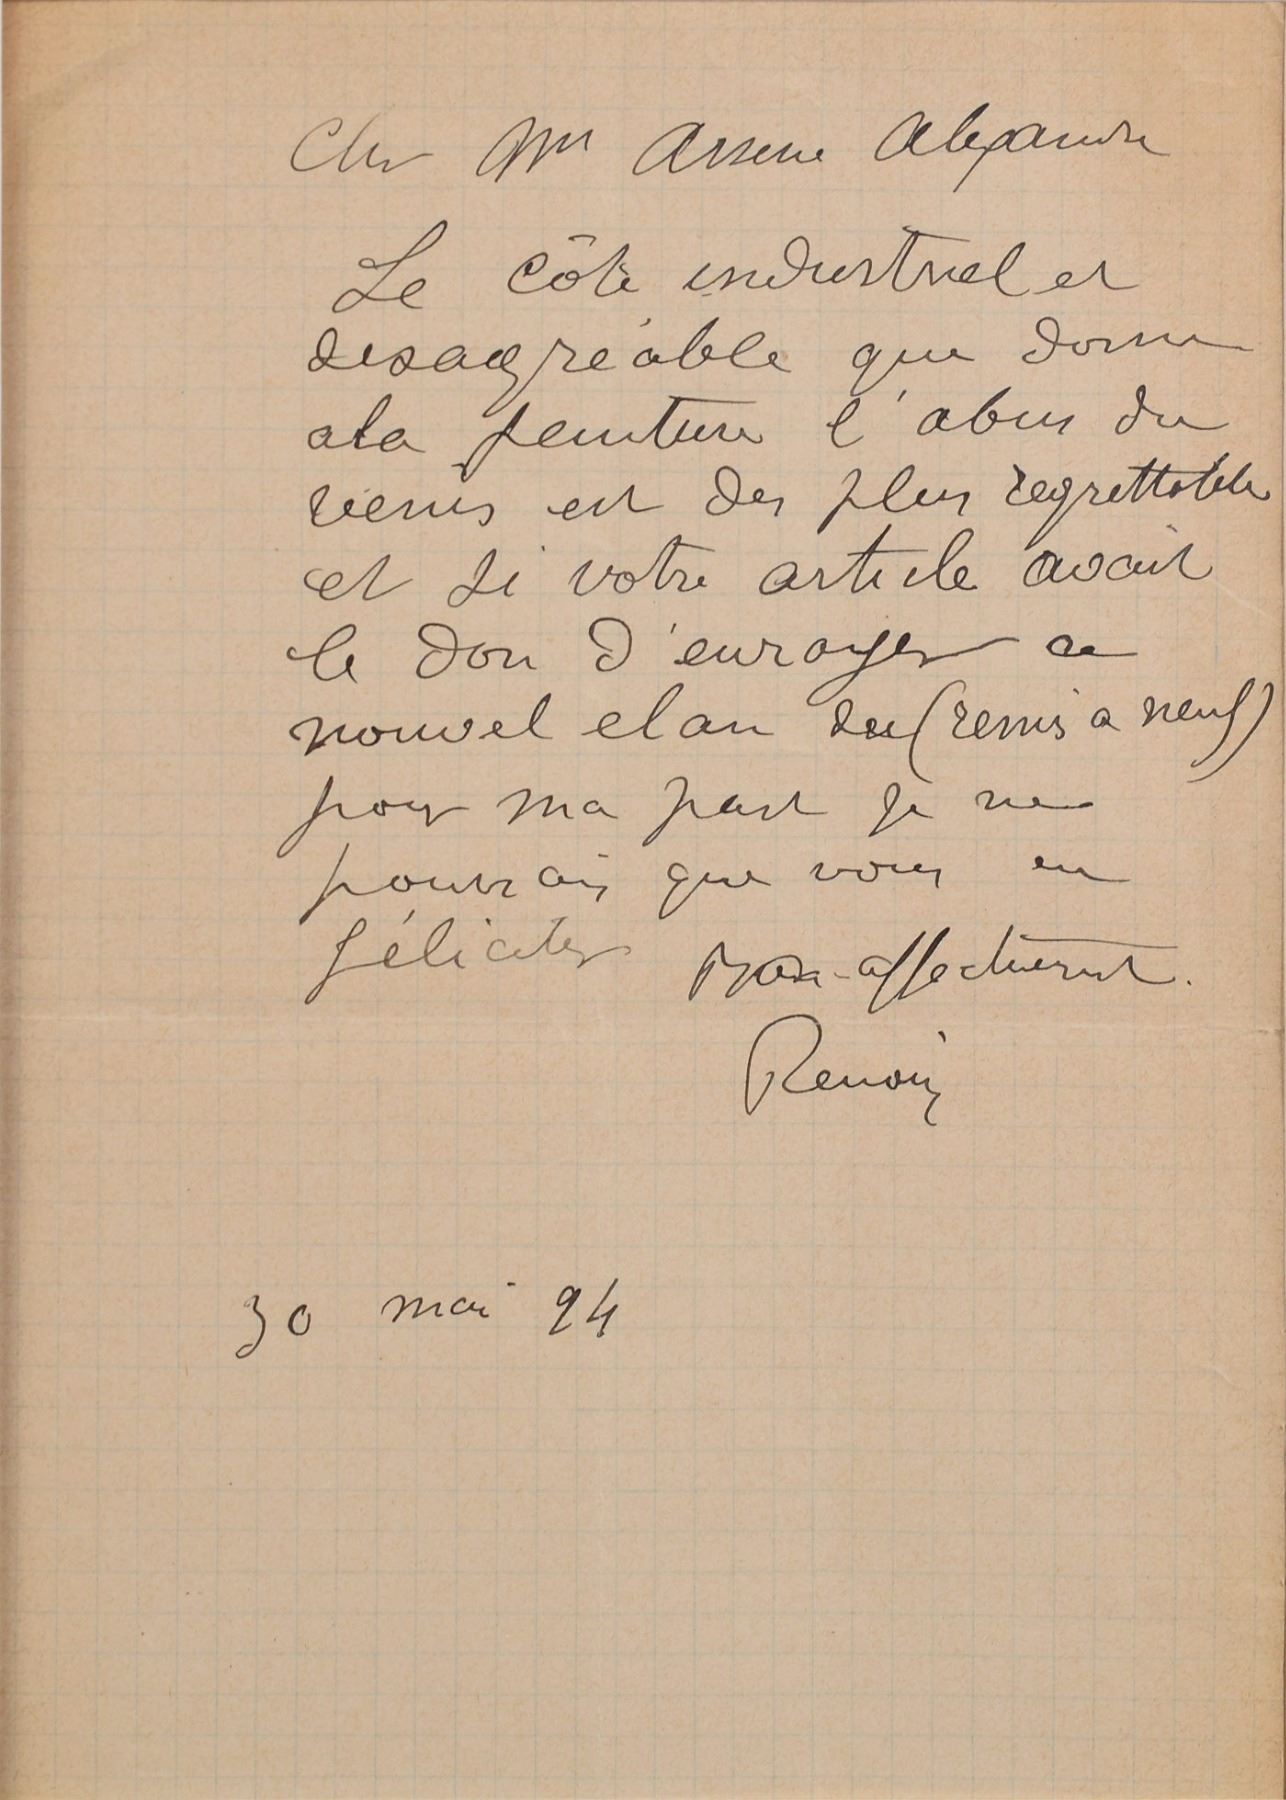 Cher Mr Arsene Alexandre
Le côté industriel et
desagréable que donne
a la peinture l'abus du
vernis est des plus regrettable
et si votre article avait
le don d'enrayer ce
nouvel elan du (remis a neuf)
pour ma part je ne
pourrais que vous en
féliciter
affectueusmt.
Renoir
30 mai 94